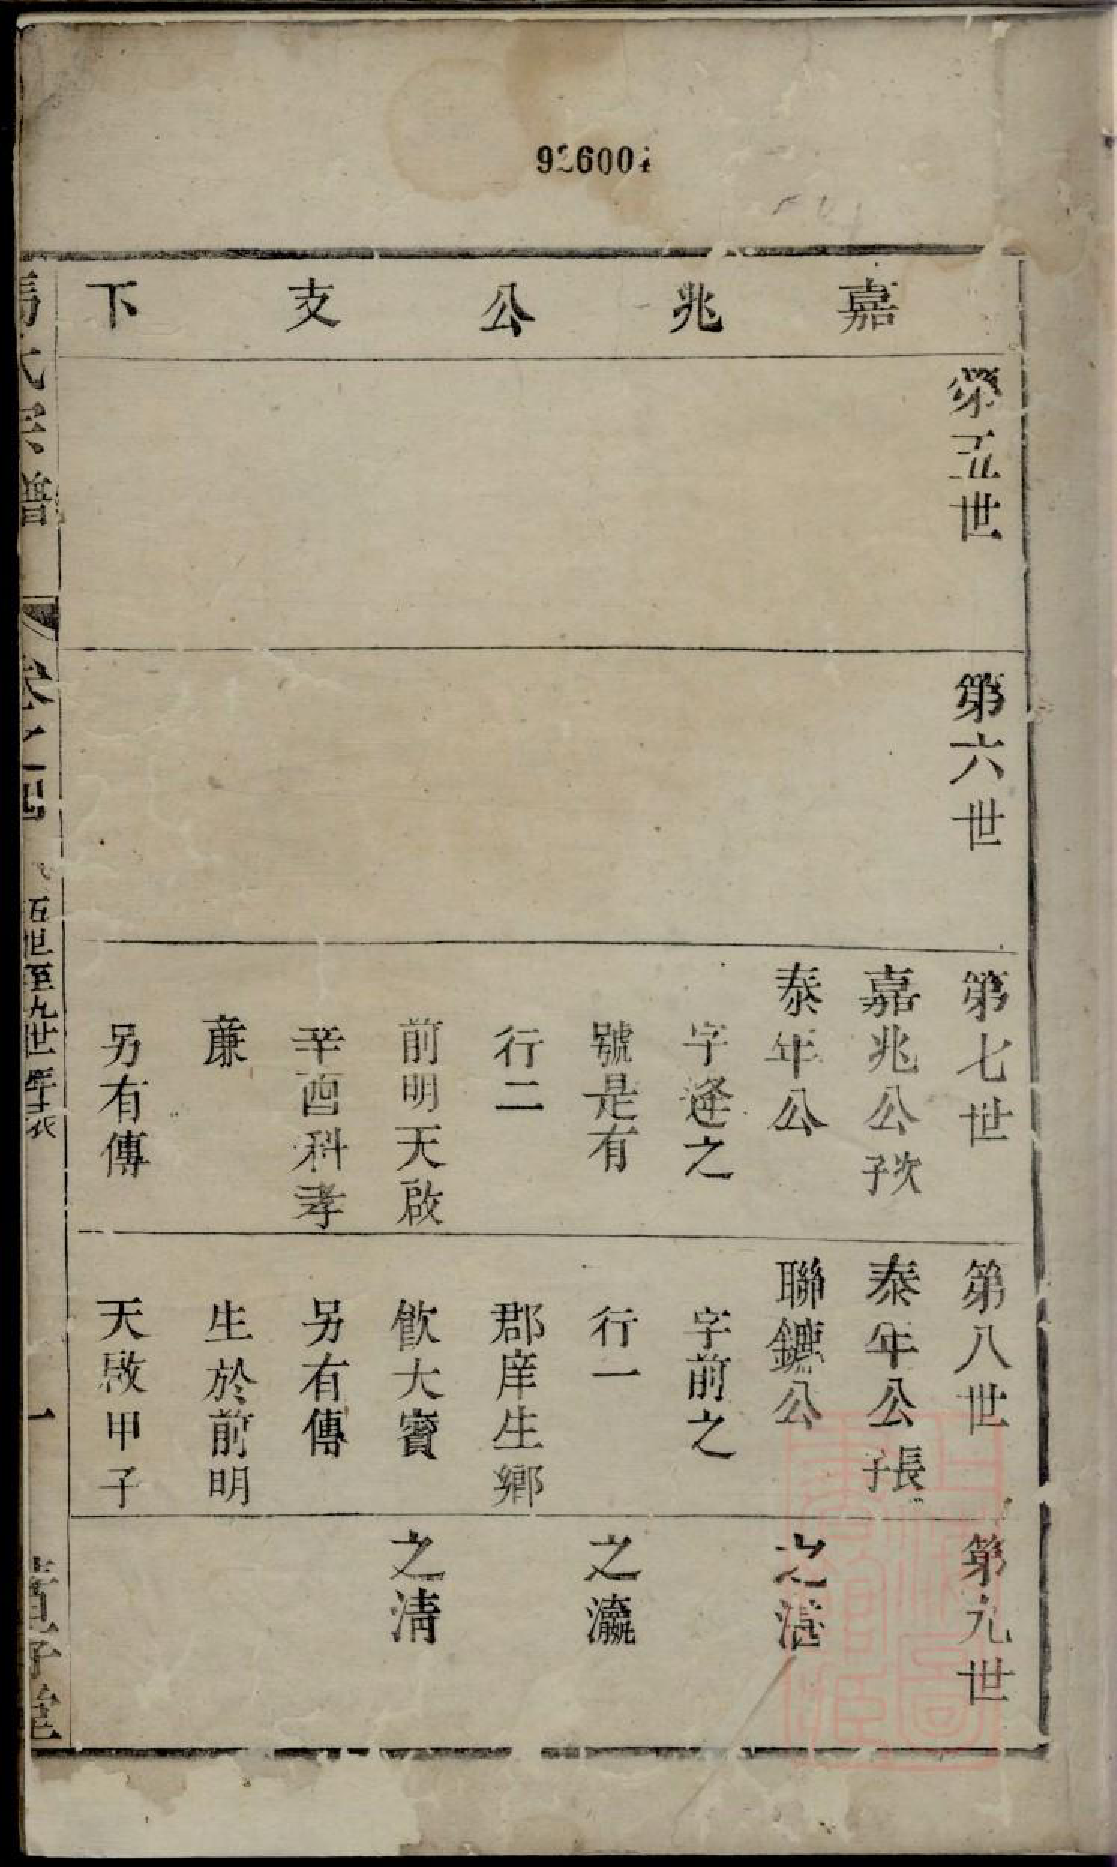 926004
嘉兆公支下
第五世
第六世
第七世
嘉兆公次子
泰年公
字逢之
號是有
行二
前明天啟
辛酉科孝
廉
另有傳
第八世
泰年公長子
聯鑣公
字前之
行一
郡庠生鄉
飲大賓
另有傳
生於前明
天啟甲子
第九世
之湛
之瀛
之清
馮氏宗譜
卷之四
五世至九世年表
一